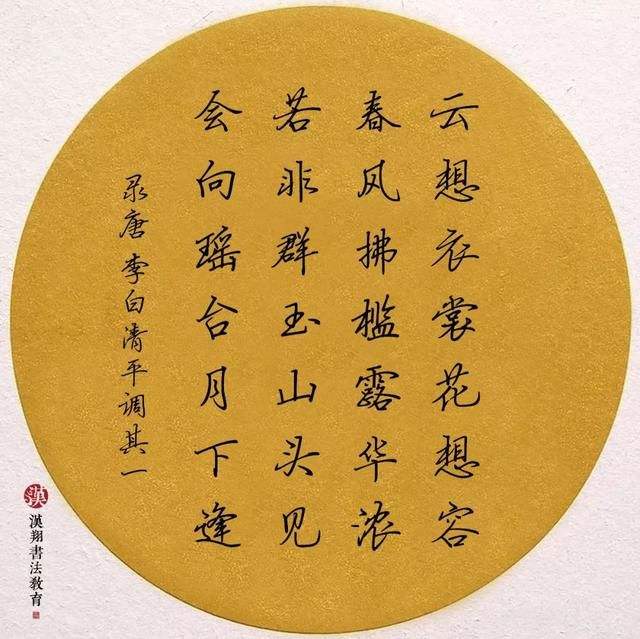 云想衣裳花想容
春风拂槛露华浓
若非群玉山头见
会向瑶台月下逢
录唐李白清平调其一
漢
漢翔書法教育